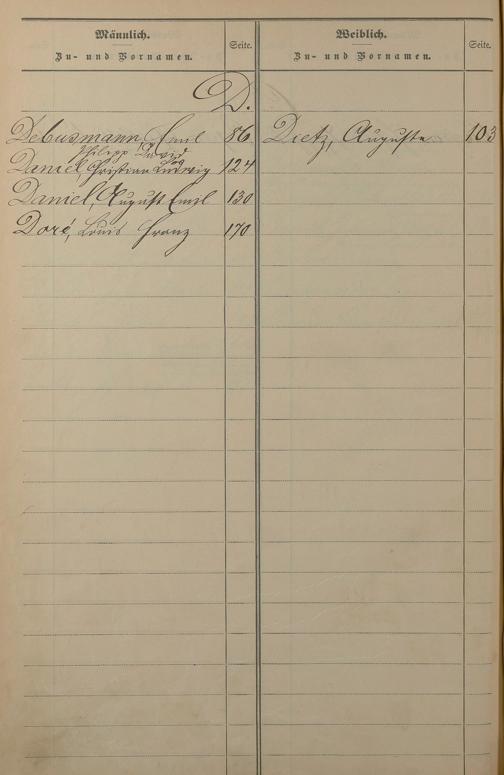 Männlich.
Zu- und Vornamen.
Seite.
Weiblich.
Zu- und Vornamen.
Seite.
D.
Debusmann, Emil 86
Philipp David
Daniel, Christian Ludwig 124
Daniel, August Emil 130
Doré, Louis Franz 170
Dietz, Auguste 103